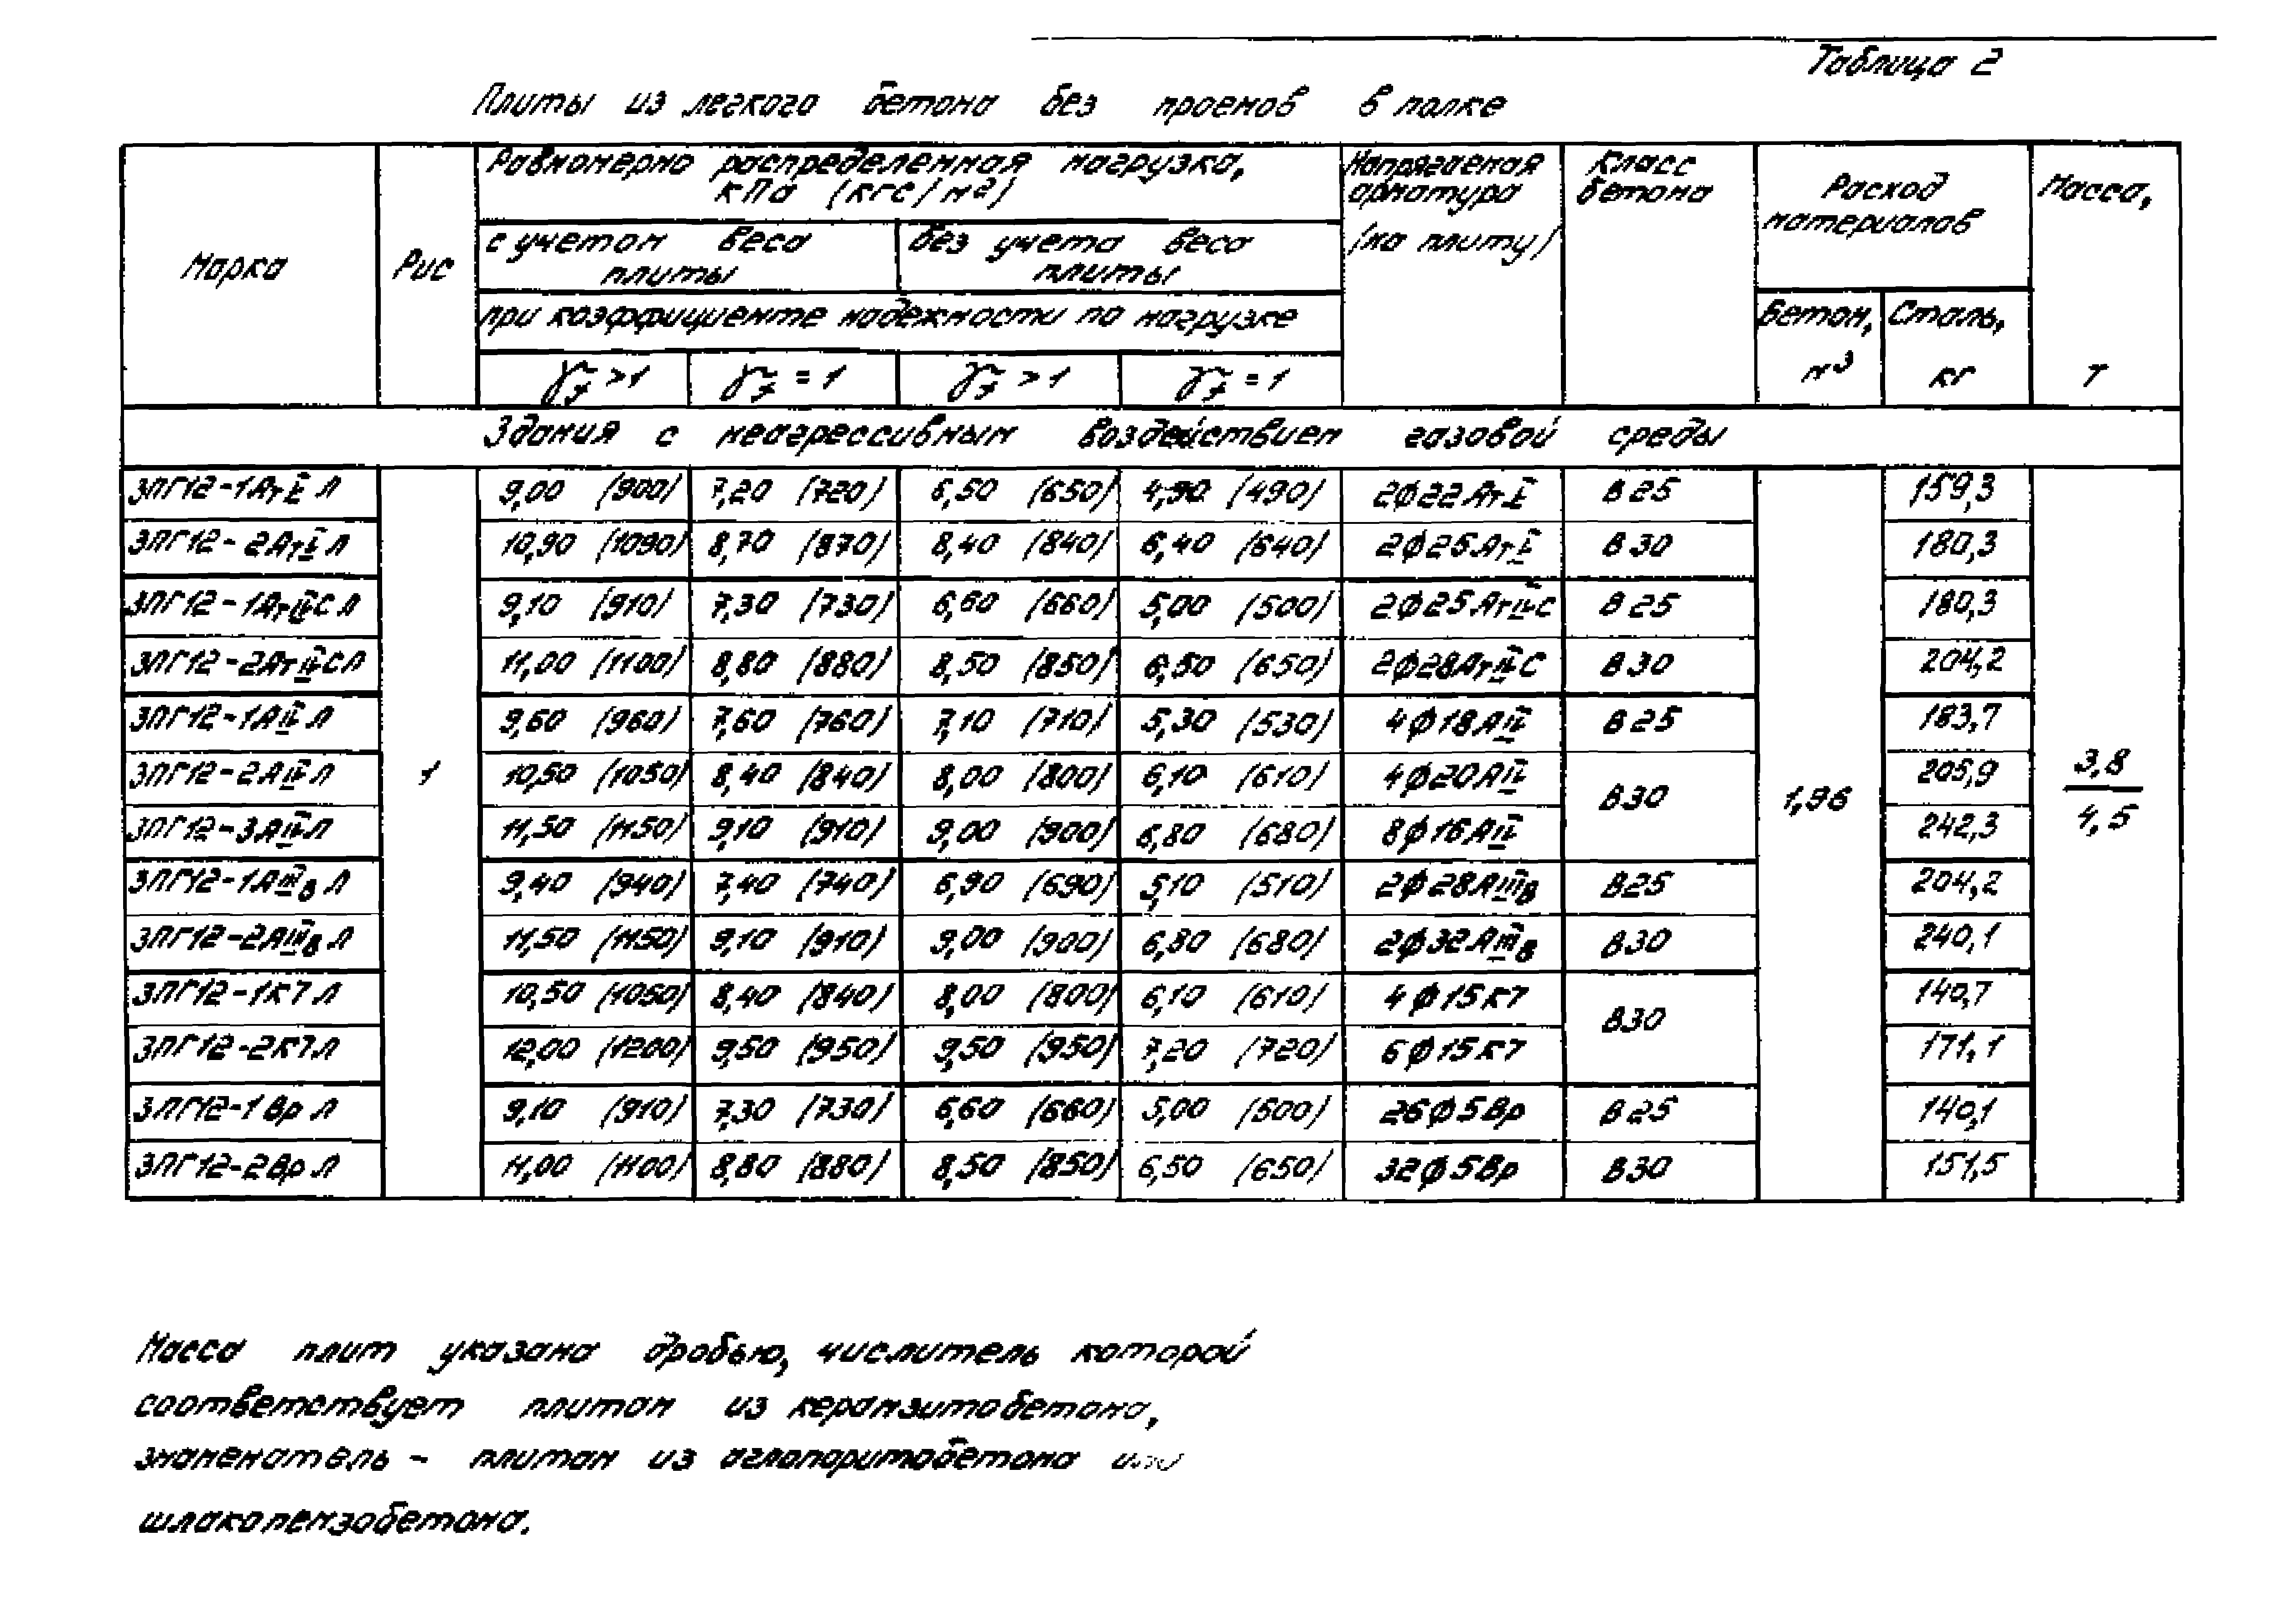 Таблица 2
Плиты из легкого бетона без проемов в полке
Марка
Рис
Равномерно распределенная нагрузка, кПа (кгс/м²)
с учетом веса плиты
без учета веса плиты
при коэффициенте надежности по нагрузке
γf >1 γf =1 γf >1 γf =1
Напрягаемая арматура (на плиту)
Класс бетона
Расход материалов
Бетон, м³
Сталь, кг
Масса, т
Здания с неагрессивным воздействием газовой среды
3ПГ12-1АтV Л 9,00 (900) 7,20 (720) 6,50 (650) 4,90 (490) 2ф22АтV В25 159,3
3ПГ12-2АтV Л 10,90 (1090) 8,70 (870) 8,40 (840) 6,40 (640) 2ф25АтV В30 180,3
3ПГ12-1АтIVС Л 9,10 (910) 7,30 (730) 6,60 (660) 5,00 (500) 2ф25АтIVС В25 180,3
3ПГ12-2АтIVСЛ 11,00 (1100) 8,80 (880) 8,50 (850) 6,50 (650) 2ф28АтIVС В30 204,2
3ПГ12-1АIV Л 9,60 (960) 7,60 (760) 7,10 (710) 5,30 (530) 4ф18АIV В25 183,7
3ПГ12-2АIV Л 1 10,50 (1050) 8,40 (840) 8,00 (800) 6,10 (610) 4ф20АIV В30 1,96 205,9 3,8
3ПГ12-3АIVЛ 11,50 (1150) 9,10 (910) 9,00 (900) 6,80 (680) 8ф16АIV 242,3 4,5
3ПГ12-1АIIIв Л 9,40 (940) 7,40 (740) 6,90 (690) 5,10 (510) 2ф28АIIIв В25 204,2
3ПГ12-2АIIIв Л 11,50 (1150) 9,10 (910) 9,00 (900) 6,80 (680) 2ф32АIIIв В30 240,1
3ПГ12-1К7 Л 10,50 (1050) 8,40 (840) 8,00 (800) 6,10 (610) 4ф15К7 В30 140,7
3ПГ12-2К7Л 12,00 (1200) 9,50 (950) 9,50 (950) 7,20 (720) 6ф15К7 171,1
3ПГ12-1Вр Л 9,10 (910) 7,30 (730) 6,60 (660) 5,00 (500) 26ф5Вр В25 140,1
3ПГ12-2Вр Л 11,00 (1100) 8,80 (880) 8,50 (850) 6,50 (650) 32ф5Вр В30 151,5
Масса плит указана дробью, числитель которой
соответствует плитам из керамзитобетона,
знаменатель - плитам из аглопоритобетона или
шлакопемзобетона.